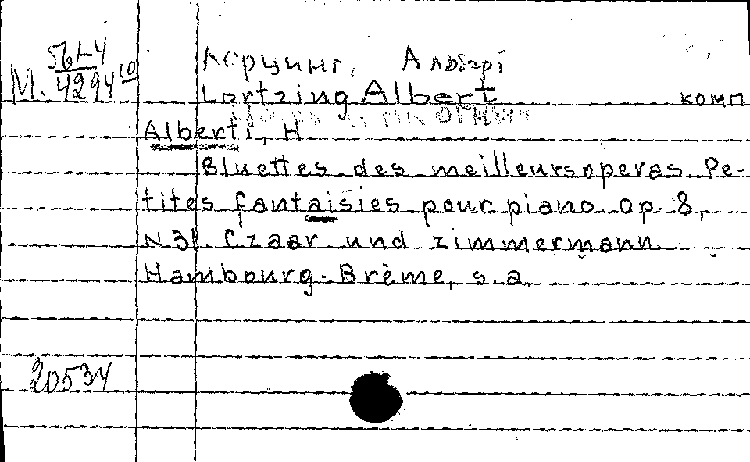 М. 56-4
4294
Лорцинг, Альберт
Lortzing Albert комп
Alberti, H
Bluettes des meilleurs operas. Pe-
tites fantaisies pour piano op 8,
N 31. Czaar und zimmermann
Hambourg-Brême, s.a.
20534